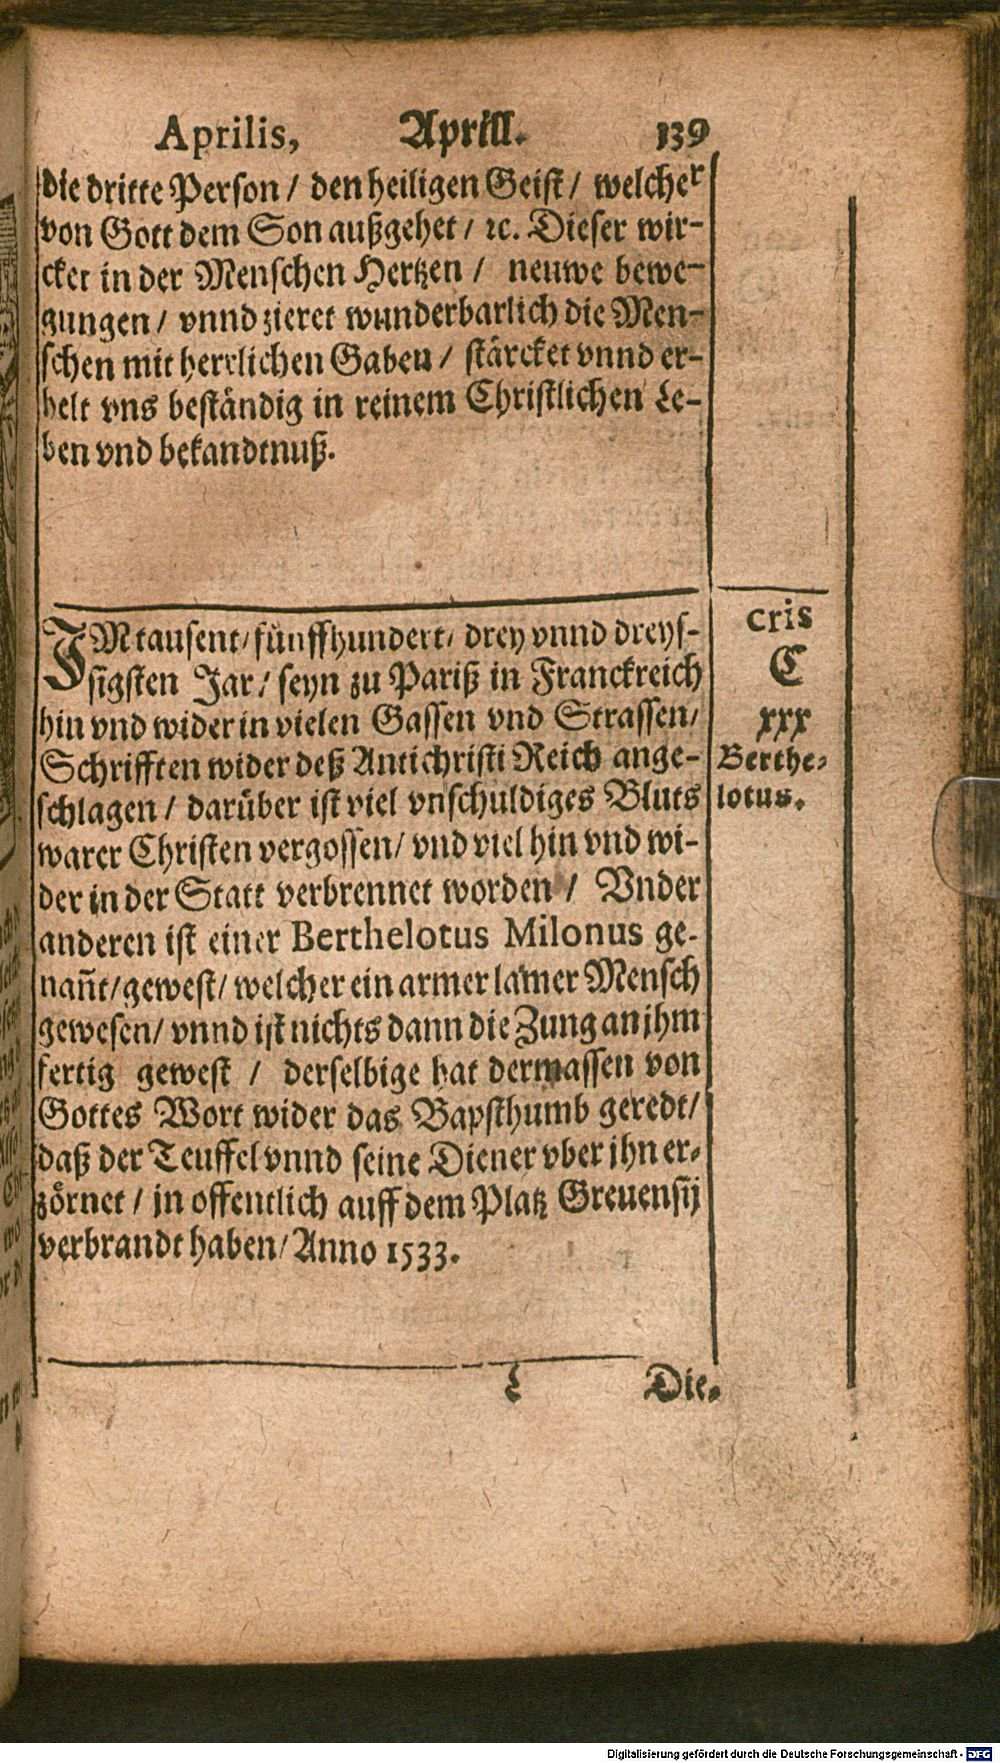 Aprilis, Aprill. 139
die dritte Person / den heiligen Geist / welcher
von Gott dem Son außgehet / ꝛc. Dieser wir-
cket in der Menschen Hertzen / neuwe bewe-
gungen / vnnd zieret wunderbarlich die Men-
schen mit herrlichen Gaben / stärcket vnnd er-
helt vns beständig in reinem Christlichen Le-
ben vnd bekandtnuß.
IM tausent / fünffhundert / drey vnnd dreys-
sigsten Jar / seyn zu Pariß in Franckreich
hin vnd wider in vielen Gassen vnd Strassen /
Schrifften wider deß Antichristi Reich ange-
schlagen / darüber ist viel vnschuldiges Bluts
warer Christen vergossen / vnd viel hin vnd wi-
der in der Statt verbrennet worden / Vnder
anderen ist einer Berthelotus Milonus ge-
nañt / gewest / welcher ein armer lamer Mensch
gewesen / vnnd ist nichts dann die Zung an jhm
fertig gewest / derselbige hat dermassen von
Gottes Wort wider das Bapsthumb geredt /
daß der Teuffel vnnd seine Diener vber jhn er-
zörnet / jn offentlich auff dem Platz Greuensij
verbrandt haben / Anno 1533.
cris
C
xxx
Berthe-
lotus.
Die-
Digitalisierung gefördert durch die Deutsche Forschungsgemeinschaft - DFG